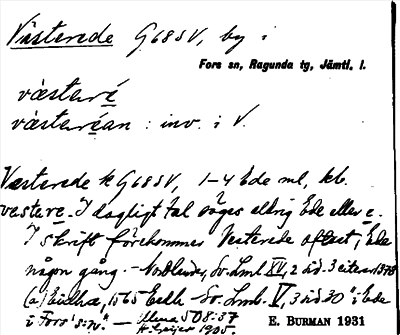 Västerede G68SV, by i
Fors sn, Ragunda tg, Jämtl. l.
västeré
västeréan : inv. i V.
Västerede h G68SV, 1-4 Ede ml, kb.
vestere. I dagligt tal säges aldrig Ede eller e.
I skrift förekommer Vesterede oftast, Ede
någon gång. - Nordlander, Sv. Lml XV, 2 sid. 3 citerar 1378
(a) Eidhæ, 1565 Eedh - Sv. Lmb. V, 3 sid 30 "i Ede
i Fors" s. 70." — Ulma 508:37
H. Geijer 1905. E. BURMAN 1931